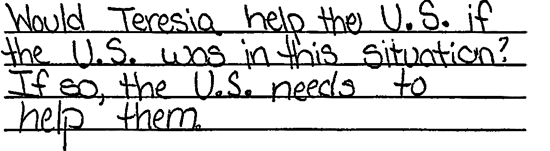 Would Teresia help the U.S. if
the U.S. was in this situation?
If so, the U.S. needs to
help them.